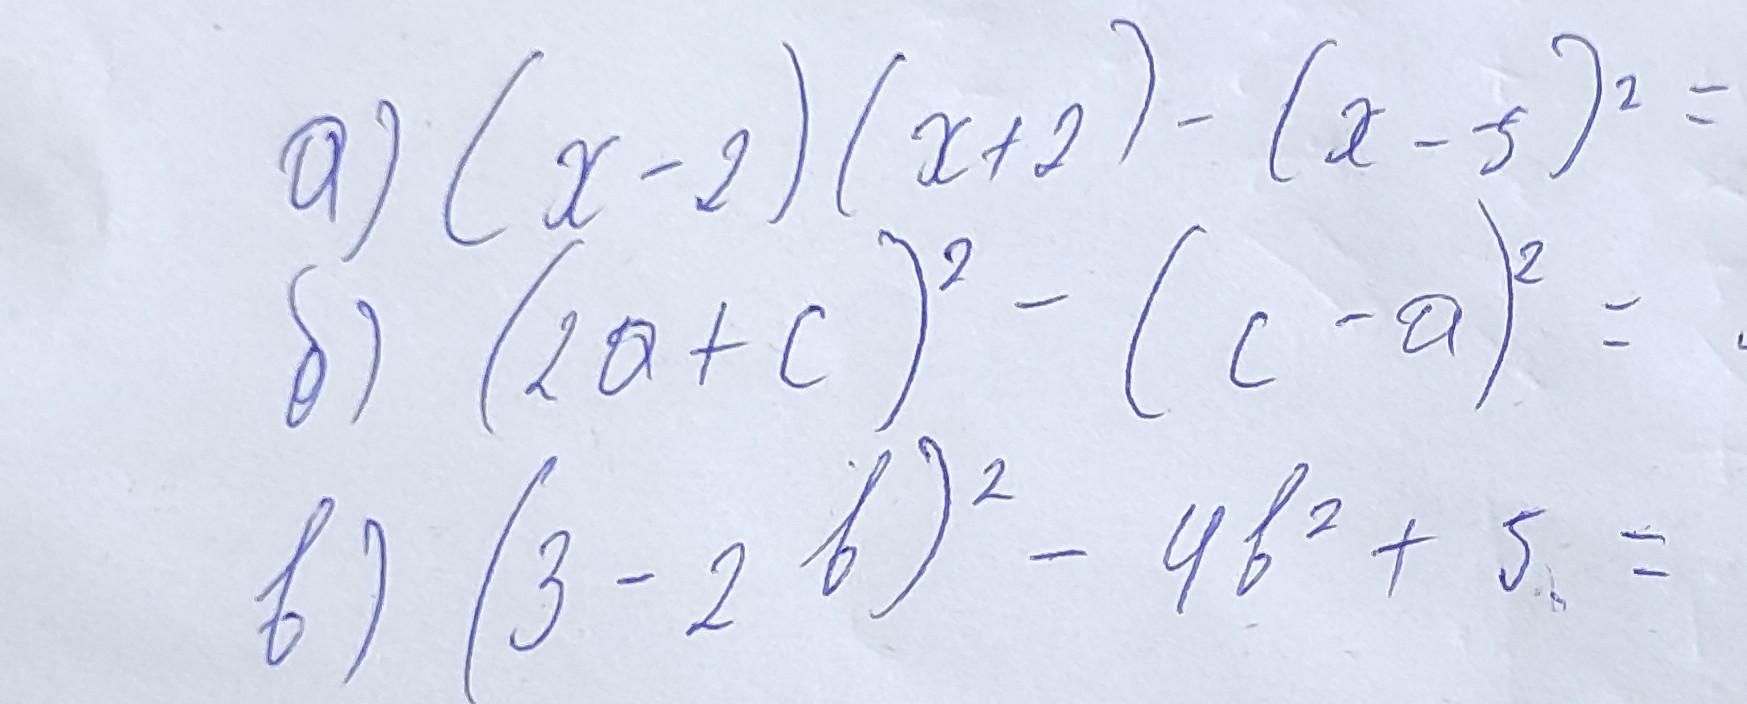 а) (x-2)(x+2) - (x-5)² =
б) (2a+c)² - (c-a)² =
в) (3-2b)² - 4b² + 5 =